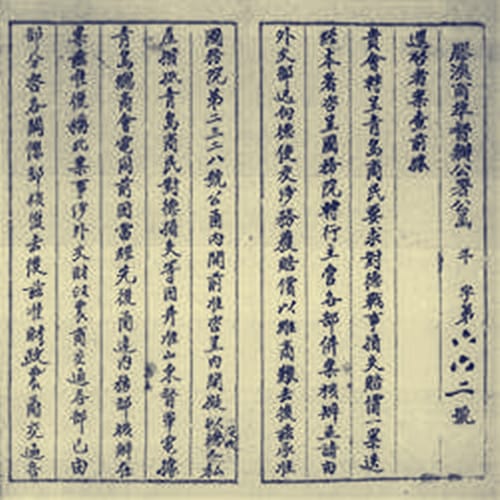 膠澳商埠督辦公署公函 字第六六二號
逕啓者案查前據
貴會轉呈青島商民要求對德戰事損失賠償一案迭
經本署咨呈國務院轉行主管各部併案核辦並請由
外交部迅向德使交涉務獲賠償以維商艱去後茲承准
國務院第二三二八號公函內開前准咨呈內開據
呈損抵青島商民對德損失等因并准山東督軍電據
青島總商會電同前因當經先後函達內務部核辦在
案茲准復稱此案事涉外交財政農商交通各部已由
部分咨各關係部核復去後茲准財政農商交通各